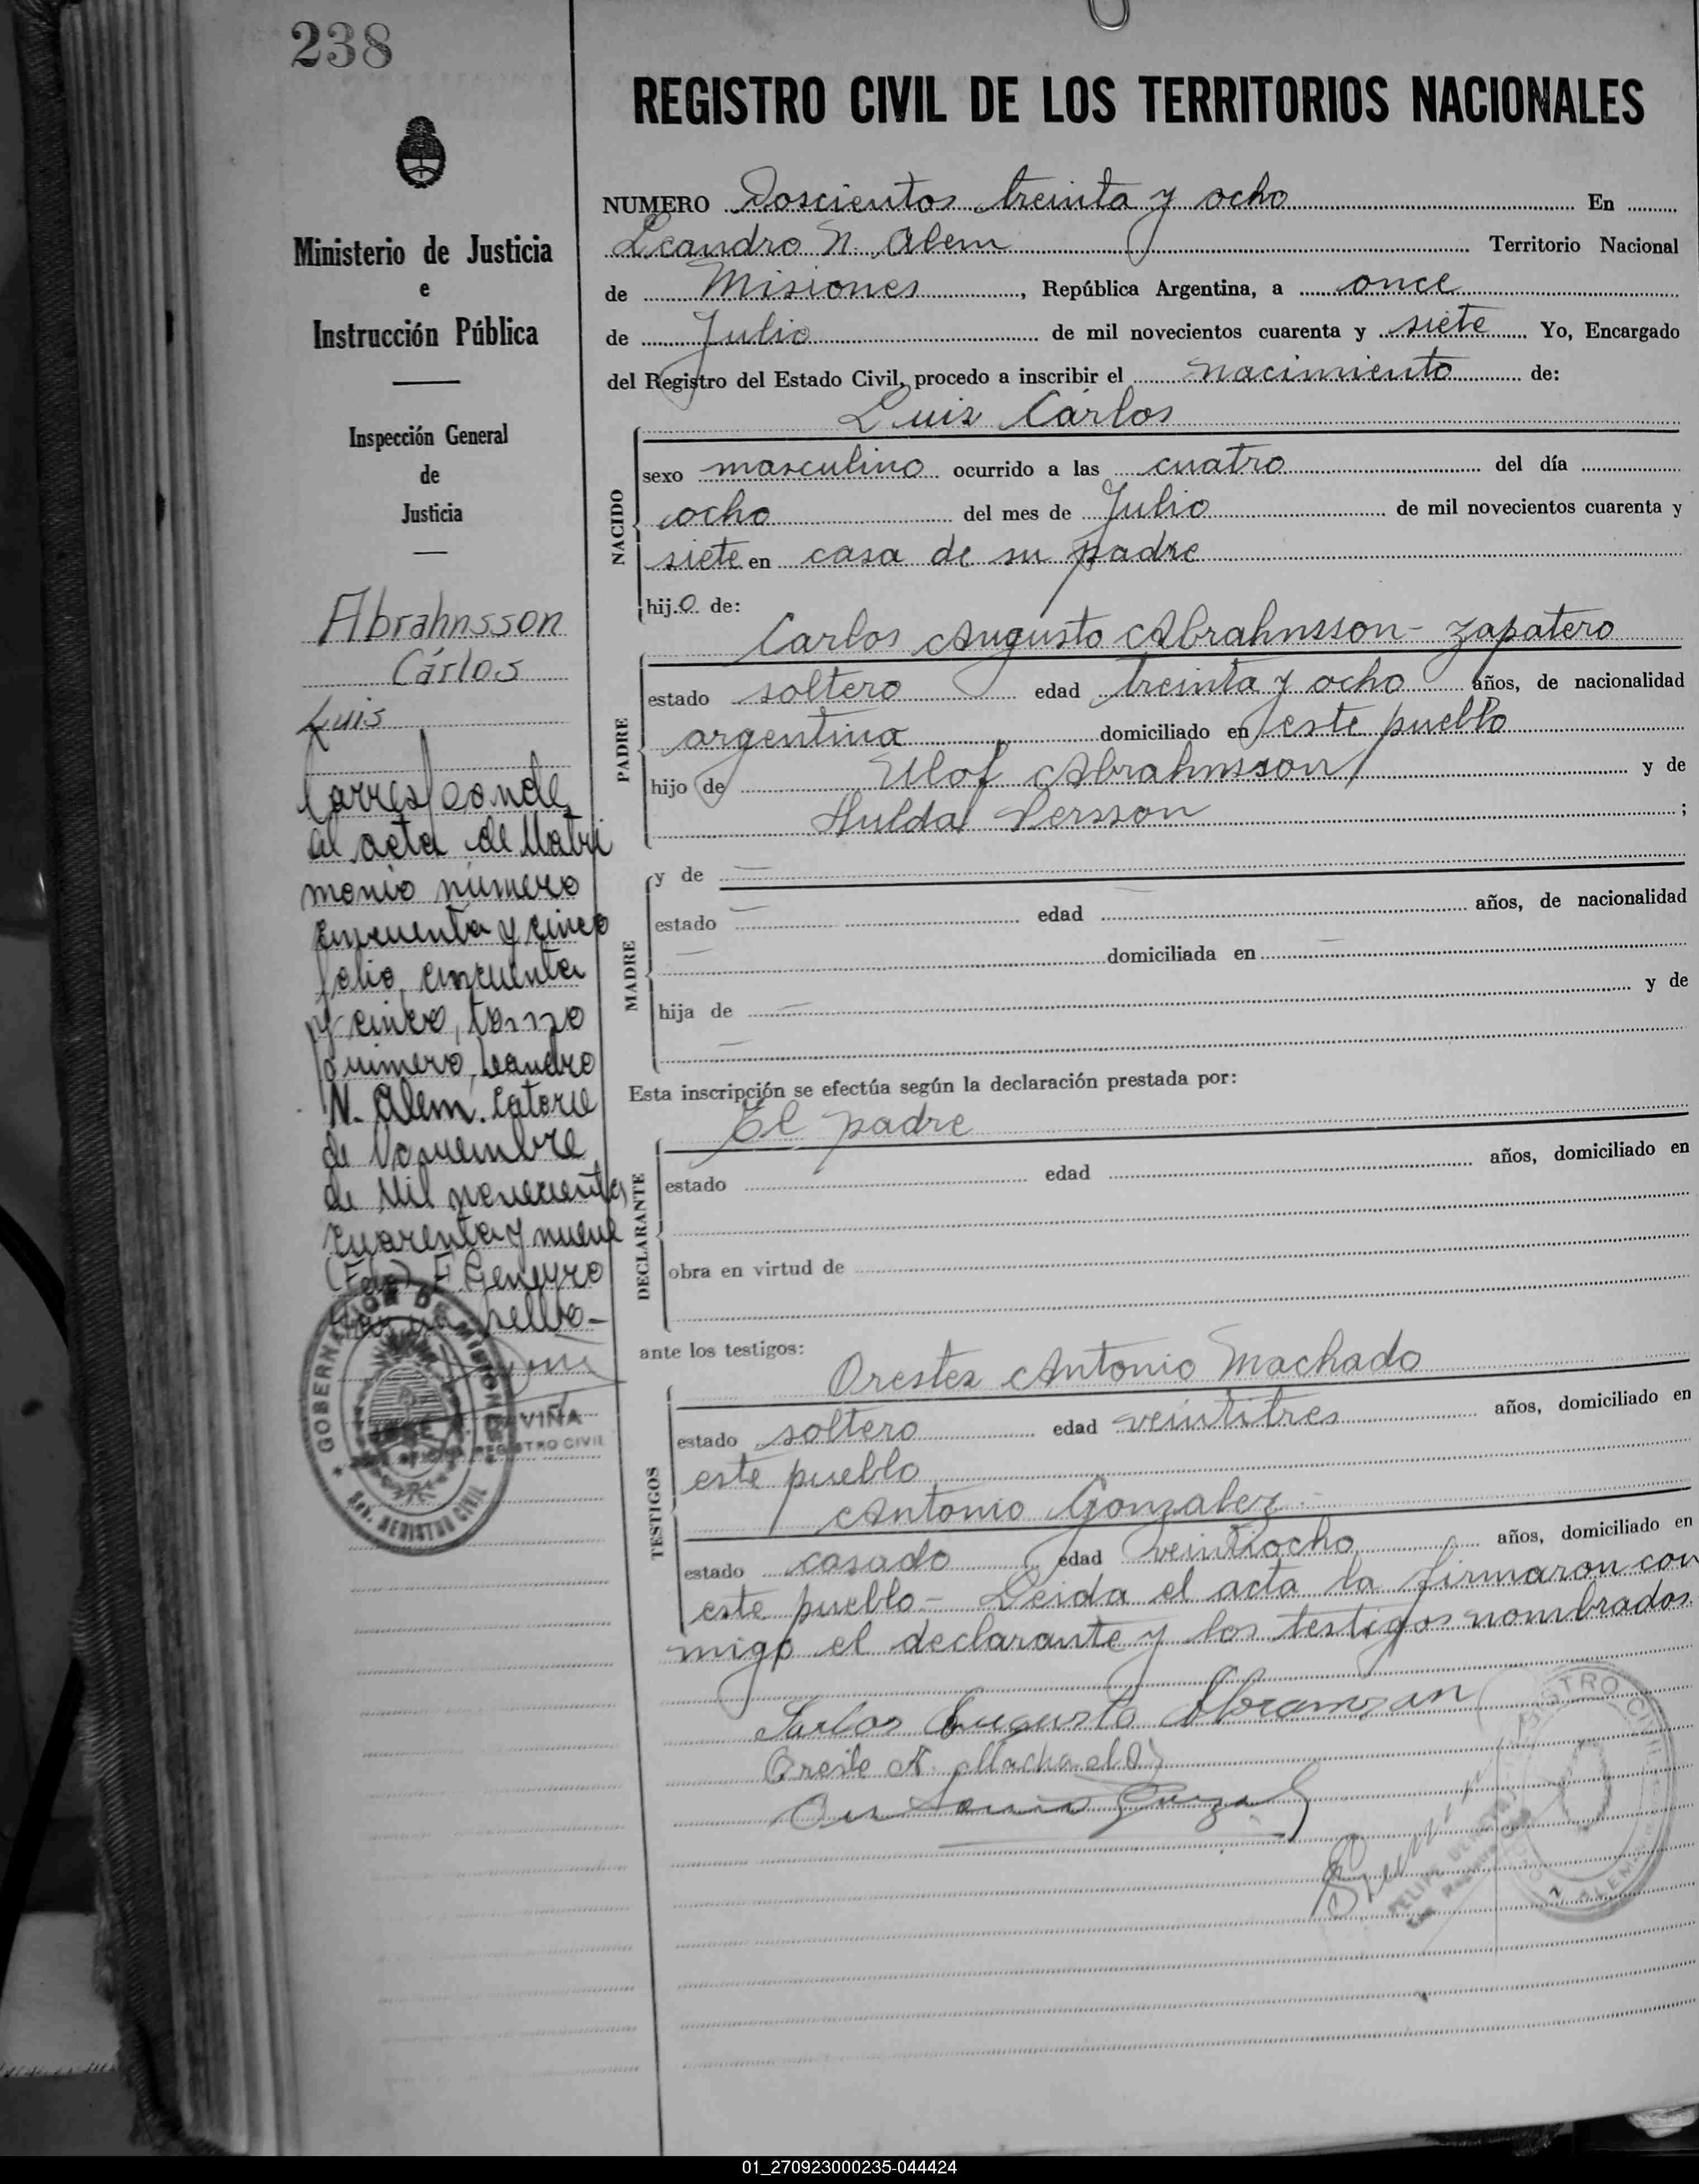 238
Ministerio de Justicia
e
Instrucción Pública
Inspección General
de
Justicia
Abrahnsson
Cárlos
Luis
Corresponde
al acta de Matri
monio número
cincuenta y cinco
folio cincuenta
y cinco, tomo
primero, Leandro
N. Alem. Catorce
de Noviembre
de Mil novecientos
cuarenta y nueve
(Fdo) F. Geneyro
Hay un sello.-
GOBERNACION DE MISIONES
REGISTRO CIVIL
VIÑA
REGISTRO CIVIL
REGISTRO CIVIL DE LOS TERRITORIOS NACIONALES
NUMERO Doscientos treinta y ocho En
Leandro N. Alem Territorio Nacional
de Misiones, República Argentina, a once
de Julio de mil novecientos cuarenta y siete Yo, Encargado
del Registro del Estado Civil, procedo a inscribir el nacimiento de:
Luis Cárlos
NACIDO
sexo masculino ocurrido a las cuatro del día
ocho del mes de Julio de mil novecientos cuarenta y
siete en casa de su padre
hijo de:
Carlos Augusto Abrahnsson- zapatero
PADRE
estado soltero edad treinta y ocho años, de nacionalidad
argentina domiciliado en este pueblo
hijo de Ulof Abrahnsson y de
Hulda Persson ;
MADRE
y de —
estado — edad años, de nacionalidad
— domiciliada en —
hija de — y de
—
Esta inscripción se efectúa según la declaración prestada por:
El padre
DECLARANTE
estado edad años, domiciliado en
obra en virtud de
ante los testigos:
Orestes Antonio Machado
TESTIGOS
estado soltero edad veintitres años, domiciliado en
este pueblo
Antonio Gonzalez
estado casado edad veintiocho años, domiciliado en
este pueblo- Leida el acta la firmaron con
migo el declarante y los testigos nombrados
Carlos Augusto Abramsan
Oreste A. Machado
REGISTRO CIVIL
N. ALEM
FELIPE
01_270923000235-044424